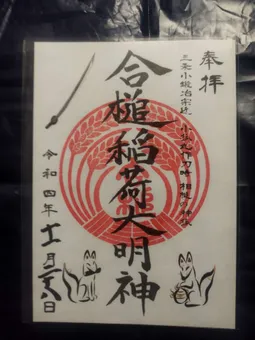 奉拝
三条小鍛冶宗近 小狐丸作刀時 相槌の神様
合槌稲荷大明神
令和四年十一月日